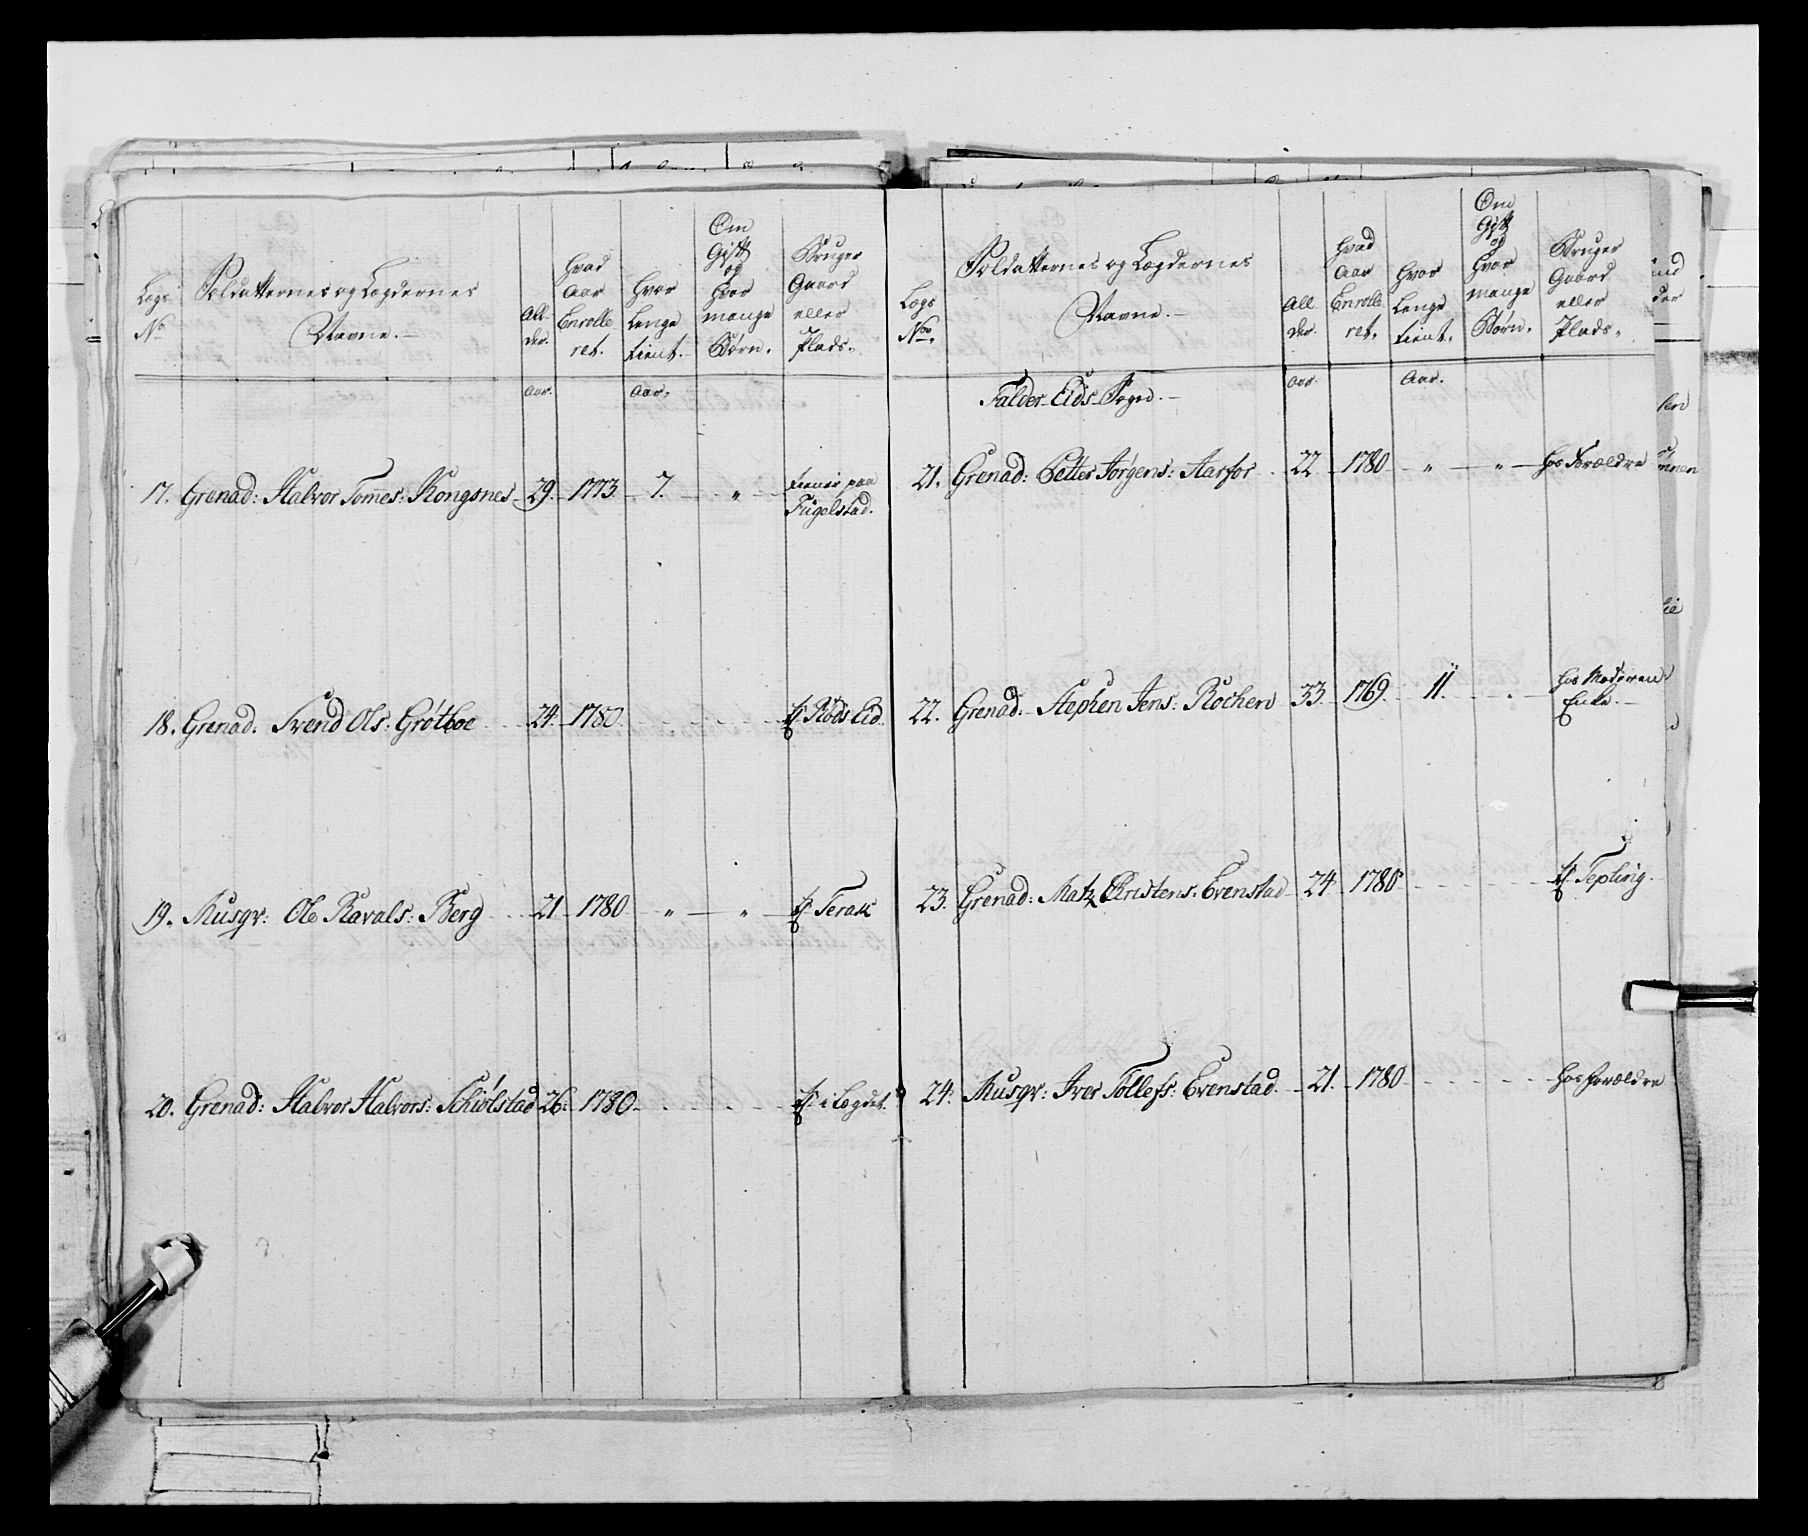 Lægs
No
Soldatternes og Lægdernes
Navne.
All
der.
Hvad
Aar
Enrolle
ret.
Hvor
Lenge
tient.
Om
Gift
og
Hvor
mange
Børn.
Bruger
Gaard
eller
Plads.
Aar.
Aar.
17. Grenad: Halvor Tomes: Kongsnes 29. 1773 7. " tiener paa
Fugelstad.
18. Grenad. Svend Ols: Grøtboe 24. 1780. Røds Eid
19. Musqr: Ole Ravals: Berg 21 1780 " " Terak
20. Grenad: Halvor Halvors: Schiølstad 26. 1780. i Legdet.
Lægs
No.
Soldatternes og Lægdernes
Navne.
All
der.
Hvad
Aar
Enrolle
ret.
Hvor
Lenge
tient.
Om
Gift
og
Hvor
mange
Børn.
Bruger
Gaard
eller
Plads.
Aar.
Aar.
Falder-Eids-Sogn.
21. Grenad: Petter Jørgens: Aarfor 22 1780 " " hos Forældre
22. Grenad: Stephen Jens: Rochen 33 1769. 11. hos Moderen
Enke.
23. Grenad: Matz Christens: Evenstad 24 1780 Tepling.
24. Musqr: Iver Tollefs: Evenstad 21. 1780 hos Forældre